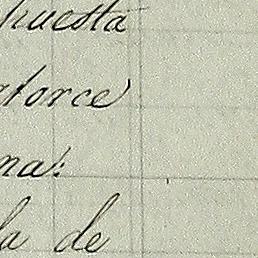 puesta
atorce
na:
la de